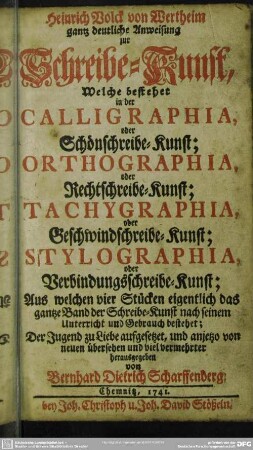 Heinrich Volck von Wertheim
gantz deutliche Anweisung
zur
Schreibe-Kunst,
Welche bestehet
in der
CALLIGRAPHIA,
oder
Schönschreibe-Kunst;
ORTHOGRAPHIA,
oder
Rechtschreibe-Kunst;
TACHYGRAPHIA,
oder
Geschwindschreibe-Kunst;
STYLOGRAPHIA,
oder
Verbindungsschreibe-Kunst;
Aus welchen vier Stücken eigentlich das
gantze Band der Schreibe-Kunst nach seinem
Unterricht und Gebrauch bestehet;
Der Jugend zu Liebe aufgesetzet, und anjetzo von
neuen übersehen und viel vermehrter
herausgegeben
von
Bernhard Dietrich Scharffenberg.
Chemnitz, 1741.
bey Joh. Christoph u. Joh. David Stößeln.
DFG